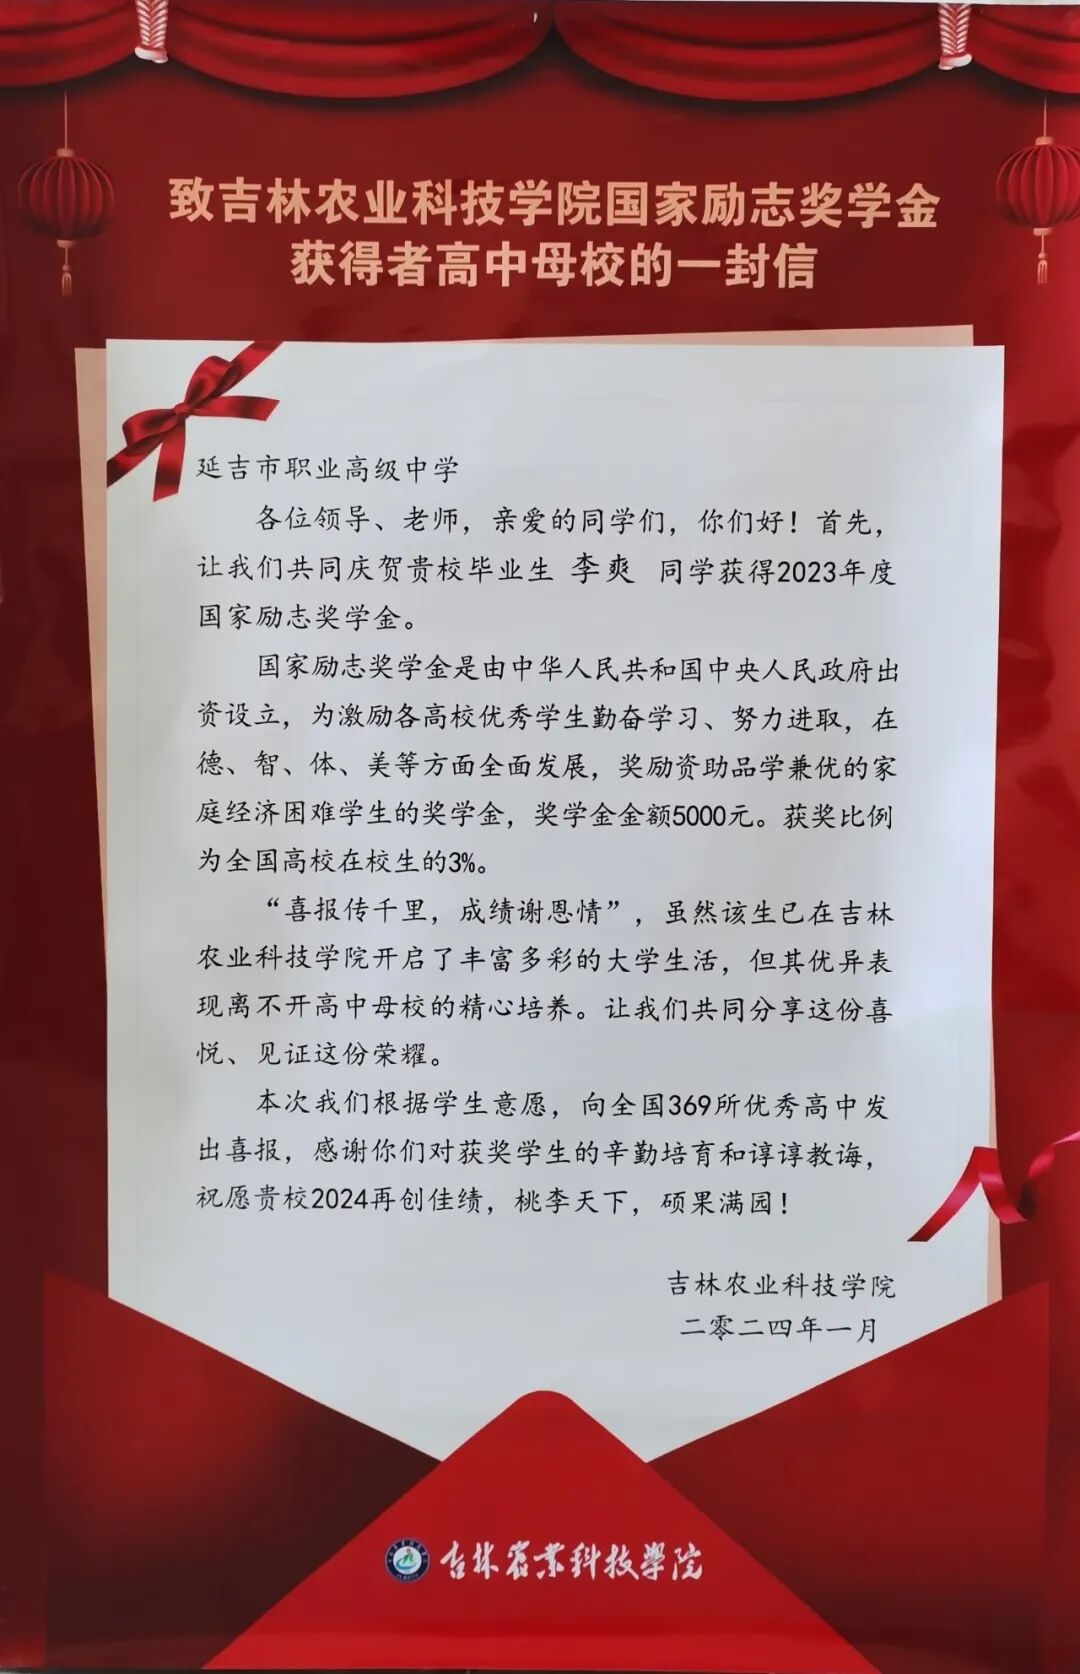 致吉林农业科技学院国家励志奖学金
获得者高中母校的一封信
延吉市职业高级中学
各位领导、老师，亲爱的同学们，你们好！首先，
让我们共同庆贺贵校毕业生 李爽 同学获得2023年度
国家励志奖学金。
国家励志奖学金是由中华人民共和国中央人民政府出
资设立，为激励各高校优秀学生勤奋学习、努力进取，在
德、智、体、美等方面全面发展，奖励资助品学兼优的家
庭经济困难学生的奖学金，奖学金金额5000元。获奖比例
为全国高校在校生的3%。
“喜报传千里，成绩谢恩情”，虽然该生已在吉林
农业科技学院开启了丰富多彩的大学生活，但其优异表
现离不开高中母校的精心培养。让我们共同分享这份喜
悦、见证这份荣耀。
本次我们根据学生意愿，向全国369所优秀高中发
出喜报，感谢你们对获奖学生的辛勤培育和谆谆教诲，
祝愿贵校2024再创佳绩，桃李天下，硕果满园！
吉林农业科技学院
二零二四年一月
吉林农业科技学院